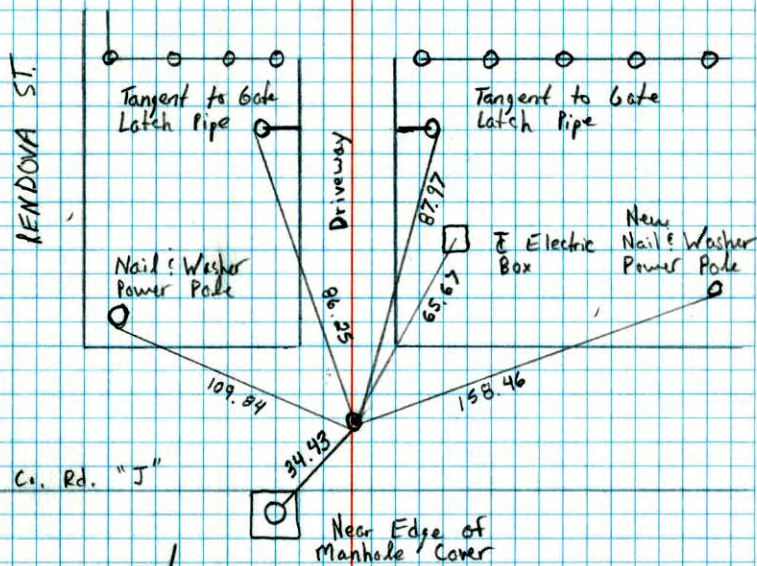 RENDOVA ST.
Tangent to Gate
Latch Pipe
Driveway
Tangent to Gate
Latch Pipe
87.97
℄ Electric
Box
New
Nail & Washer
Power Pole
Nail & Washer
Power Pole
86.25
65.67
109.84
158.46
34.43
Co. Rd. "J"
Near Edge of
Manhole Cover